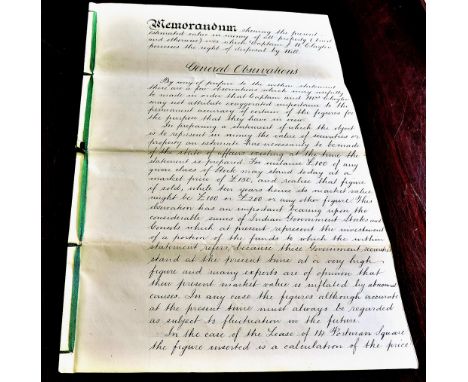 Memorandum showing the present
estimated value in money of all property (trust
and otherwise) over which Captain J. W.
possesses the right of disposal by Will.
General Observations
By way of preface to the within statement
there are a few observations which may usefully
be made in order that Captain and Mrs
may not attribute exaggerated importance to the
permanent accuracy of certain of the figures for
the purpose that they have in view.
In preparing a statement of which the object
is to represent in money the value of securities or
property an estimate has necessarily to be made
of the state of affairs existing at the time the
statement is prepared. For instance £100 of any
given class of Stock may stand today at a
market price of £150, and realise that figure
if sold, while ten years hence its market value
might be £100 or £200 or any other figure. This
illustration has an important bearing upon the
considerable sums of Indian Government Stocks and
Consols which at present represent the investment
of a portion of the funds to which the within
statement refers, because these Government Securities
stand at the present time at a very high
figure and many experts are of opinion that
their present market value is inflated by abnormal
causes. In any case the figures although accurate
at the present time must always be regarded
as subject to fluctuation in the future.
In the case of the Lease of Portman Square
the figure inserted is a calculation of the price